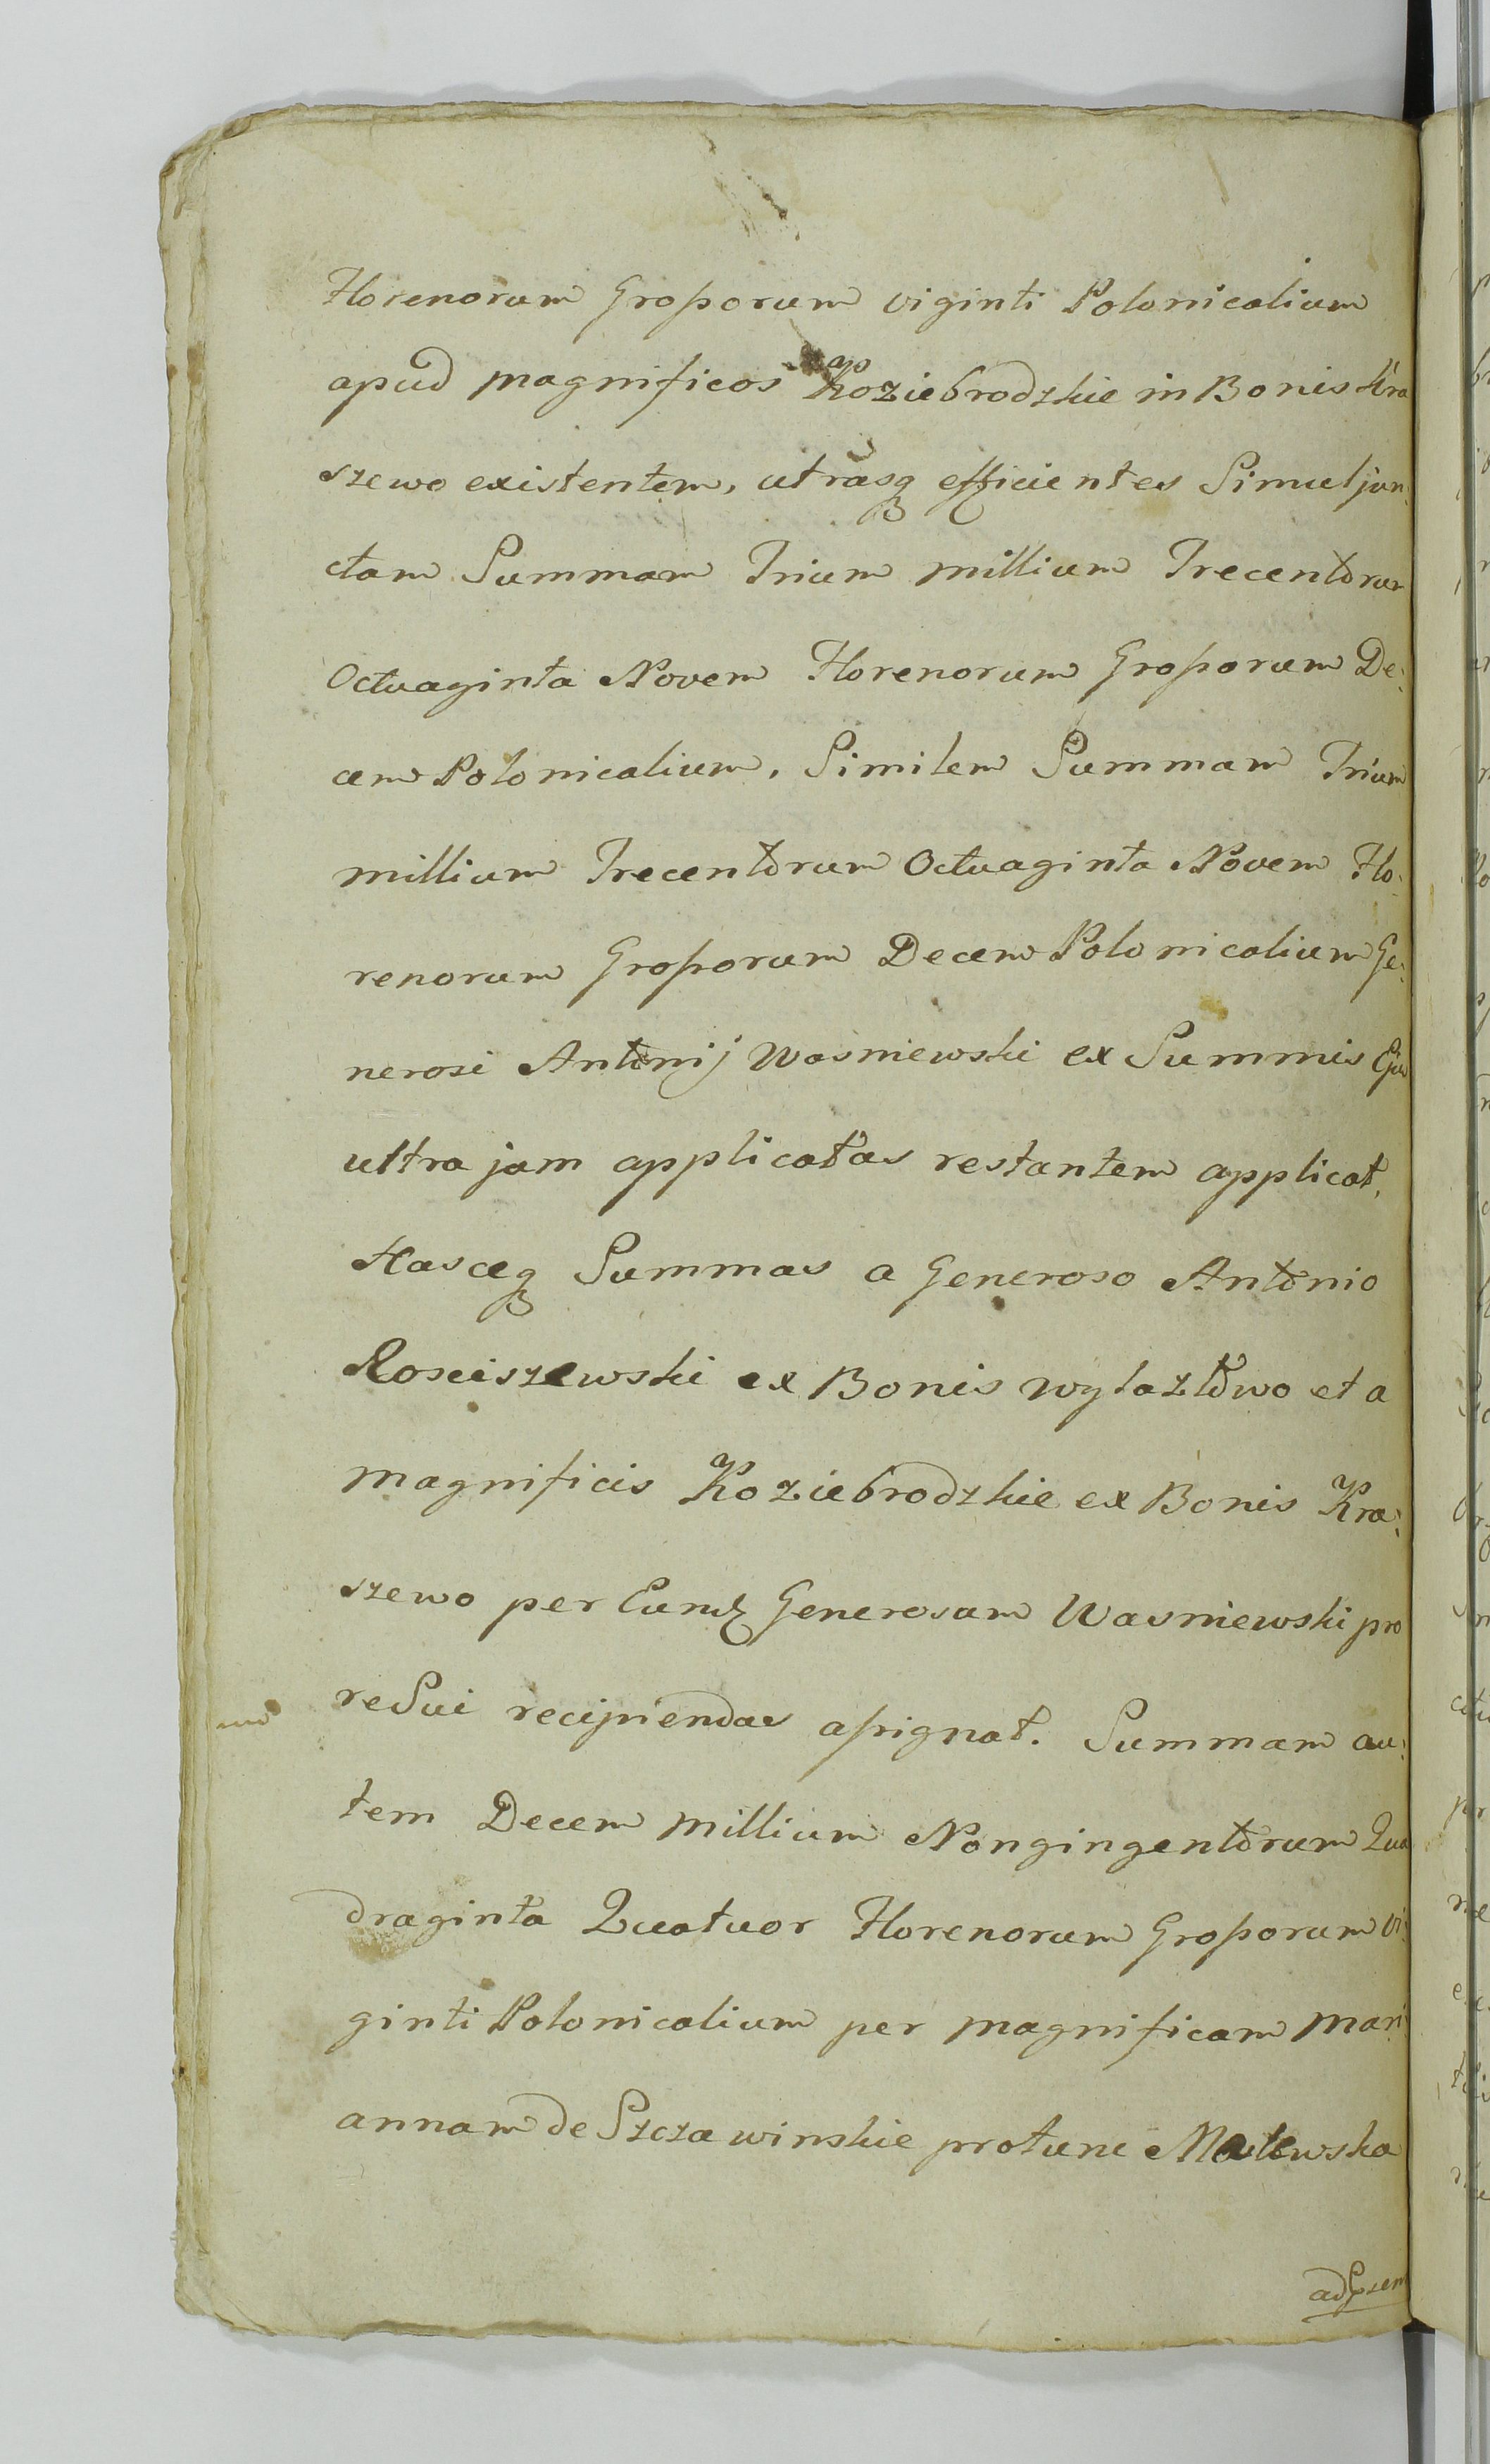 Florenorum Grossorum viginti Polonicalium
apud Magnificos Koziebrodzkie in Bonis Kra
szewo existentem, utrasq efficientes Simul jun:
ctam Summam Trium millium Trecentorum
Octuaginta Novem Florenorum Grossorum De:
cem Polonicalium, Similem Summam Trium
millium Trecentorum Octuaginta Novem Flo:
renorum Grossorum Decem Polonicalium Ge:
nerosi Antonij Wasniewski ex Summis Ejus
ultra jam applicatas restantem applicat,
Hasceq Summas a Generoso Antonio
Rosciszewski ex Bonis Wylaztowo et a
Magnificis Koziebrodzkie ex Bonis Kra:
szewo per Eund Generosum Wasniewski pro
re Sui recipiendas assignat. Summam au:
tem Decem Millium Nongingentorum Qua
draginta Quatuor Florenorum Grossorum vi:
ginti Polonicalium per Magnificam Mari
annam de Szczawinskie protunc Malewska